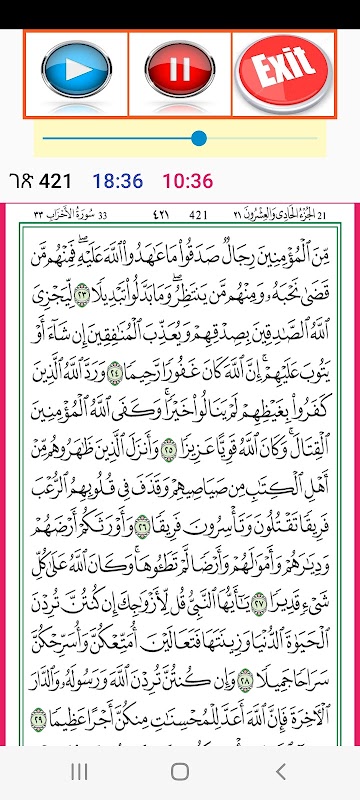 Exit
ገጽ 421 18:36 10:36
33 سُورَةُ الأَحْزَاب ٣٣ ٤٢١ 421 الجُزْءُ الحَادِى وَالعِشْرُونَ ٢١ 21
مِّنَ ٱلْمُؤْمِنِينَ رِجَالٌ صَدَقُوا۟ مَا عَٰهَدُوا۟ ٱللَّهَ عَلَيْهِ ۖ فَمِنْهُم مَّن
قَضَىٰ نَحْبَهُۥ وَمِنْهُم مَّن يَنتَظِرُ ۖ وَمَا بَدَّلُوا۟ تَبْدِيلًا ٢٣ لِّيَجْزِىَ
ٱللَّهُ ٱلصَّٰدِقِينَ بِصِدْقِهِمْ وَيُعَذِّبَ ٱلْمُنَٰفِقِينَ إِن شَآءَ أَوْ
يَتُوبَ عَلَيْهِمْ ۚ إِنَّ ٱللَّهَ كَانَ غَفُورًا رَّحِيمًا ٢٤ وَرَدَّ ٱللَّهُ ٱلَّذِينَ
كَفَرُوا۟ بِغَيْظِهِمْ لَمْ يَنَالُوا۟ خَيْرًا ۚ وَكَفَى ٱللَّهُ ٱلْمُؤْمِنِينَ
ٱلْقِتَالَ ۚ وَكَانَ ٱللَّهُ قَوِيًّا عَزِيزًا ٢٥ وَأَنزَلَ ٱلَّذِينَ ظَٰهَرُوهُم مِّنْ
أَهْلِ ٱلْكِتَٰبِ مِن صَيَاصِيهِمْ وَقَذَفَ فِى قُلُوبِهِمُ ٱلرُّعْبَ
فَرِيقًا تَقْتُلُونَ وَتَأْسِرُونَ فَرِيقًا ٢٦ وَأَوْرَثَكُمْ أَرْضَهُمْ
وَدِيَٰرَهُمْ وَأَمْوَٰلَهُمْ وَأَرْضًا لَّمْ تَطَـُٔوهَا ۚ وَكَانَ ٱللَّهُ عَلَىٰ كُلِّ
شَىْءٍ قَدِيرًا ٢٧ يَٰٓأَيُّهَا ٱلنَّبِىُّ قُل لِّأَزْوَٰجِكَ إِن كُنتُنَّ تُرِدْنَ
ٱلْحَيَوٰةَ ٱلدُّنْيَا وَزِينَتَهَا فَتَعَالَيْنَ أُمَتِّعْكُنَّ وَأُسَرِّحْكُنَّ
سَرَاحًا جَمِيلًا ٢٨ وَإِن كُنتُنَّ تُرِدْنَ ٱللَّهَ وَرَسُولَهُۥ وَٱلدَّارَ
ٱلْءَاخِرَةَ فَإِنَّ ٱللَّهَ أَعَدَّ لِلْمُحْسِنَٰتِ مِنكُنَّ أَجْرًا عَظِيمًا ٢٩